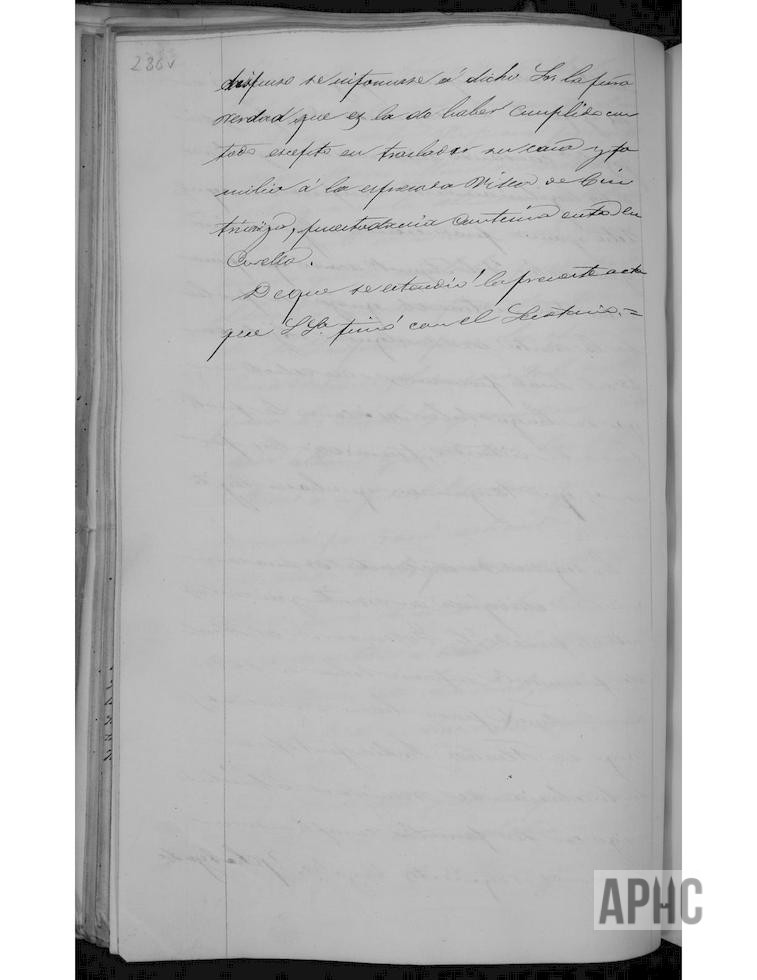 286v
dispuso se informase á dicho Sor la pura
verdad que es la de haber cumplido con
todo escepto en trasladar su casa y fa
milia á la espresada Villa de Cin
truénigo, pues todavia continúa en
Corella.
De que se estendió la presente acta
que S Sa firmó con el Secretario.=
APHC